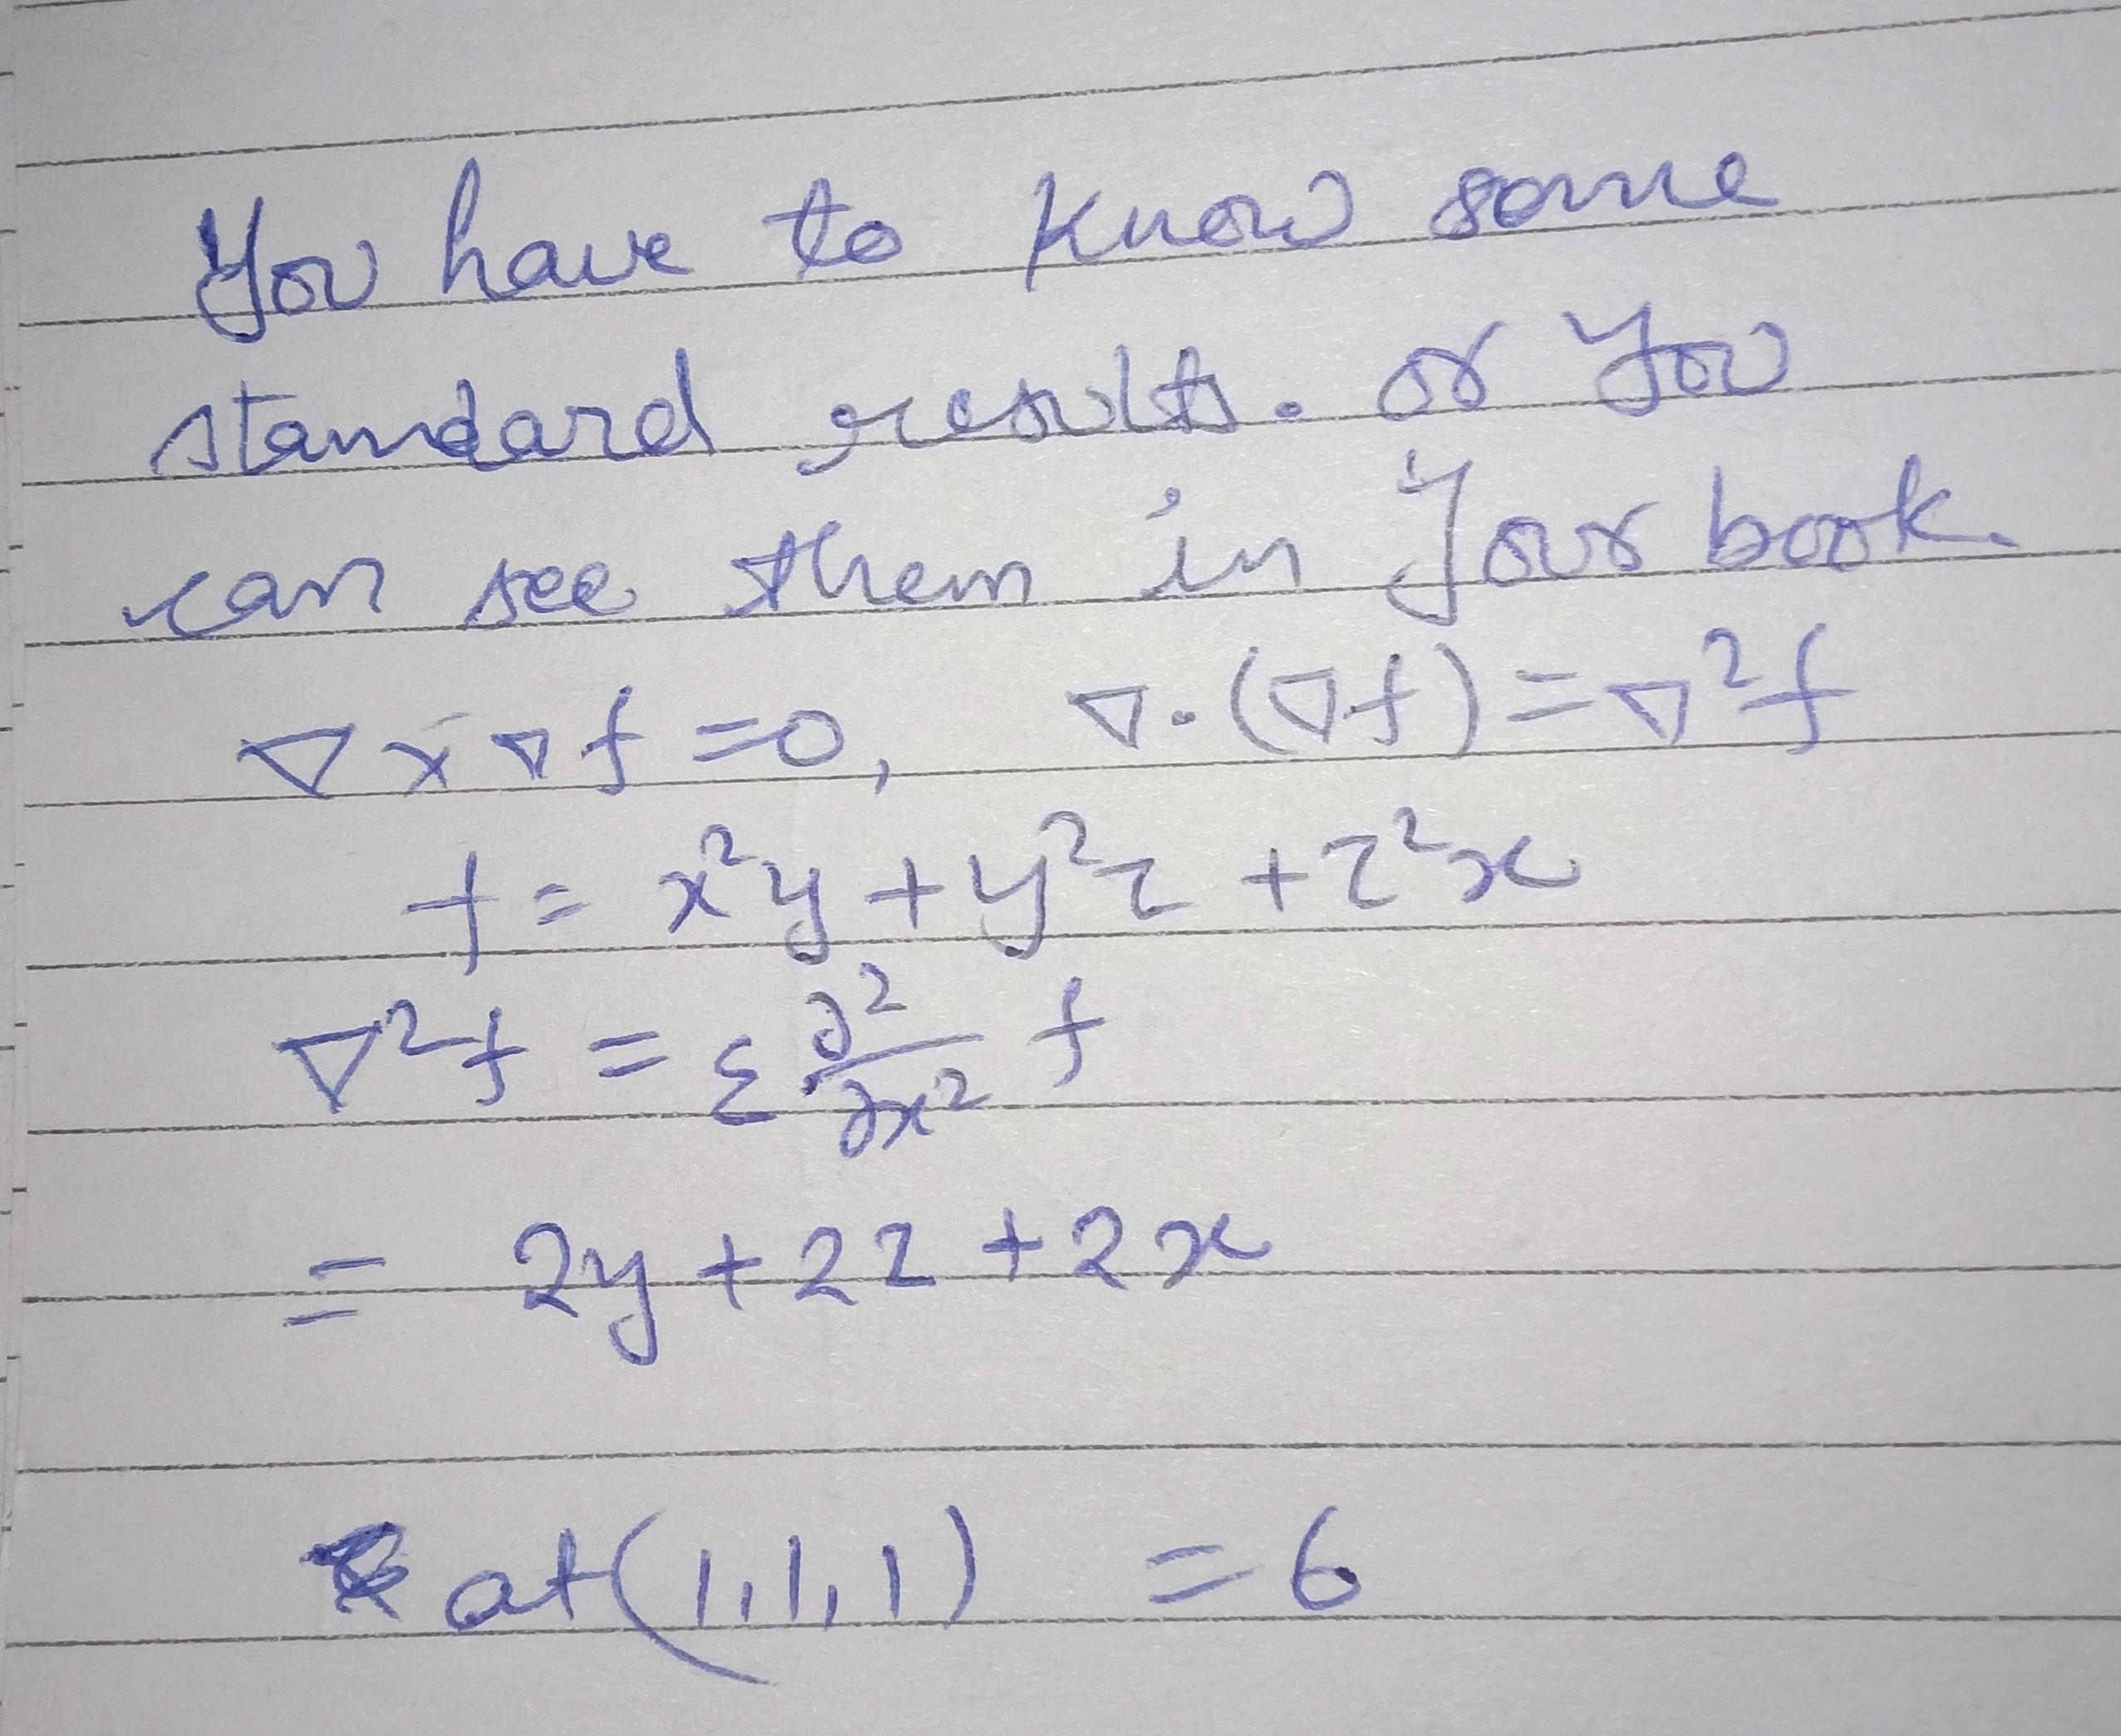 You have to know some
standard results. or you
can see them in your book.
∇×∇f=0, ∇.(∇f)=∇²f
f= x²y+y²z+z²x
∇²f = Σ ∂²/∂x² f
= 2y+2z+2x
at(1,1,1) =6